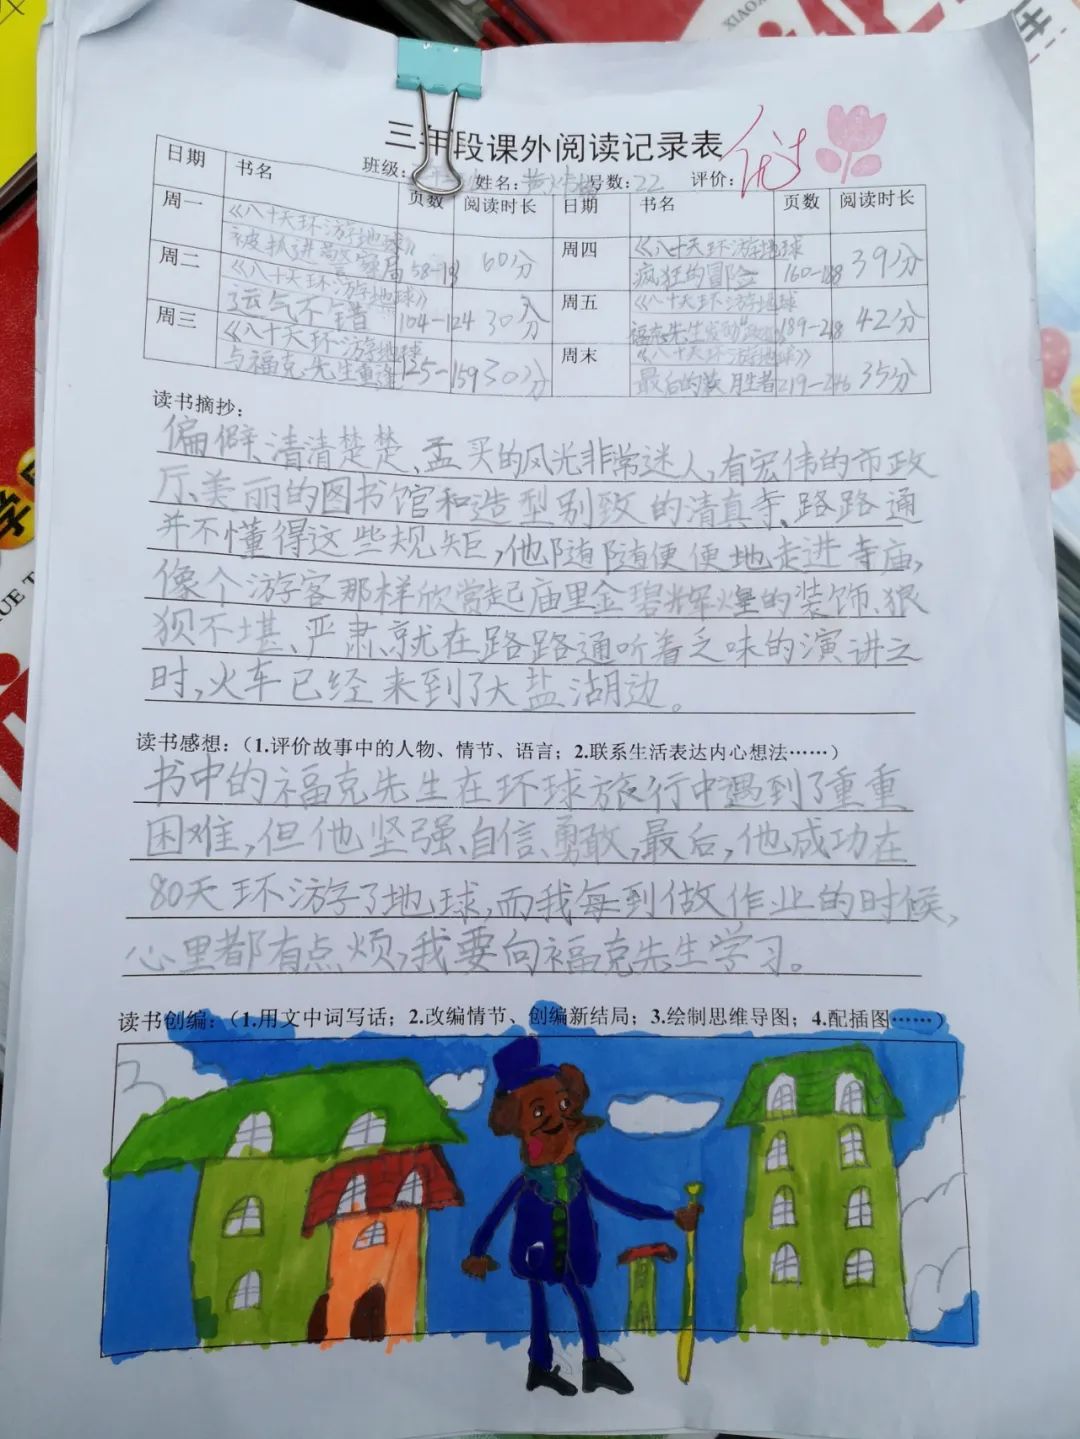 三年段课外阅读记录表
优
班级: 姓名:黄 号数:22 评价:
日期 书名 页数 阅读时长 日期 书名 页数 阅读时长
周一 《八十天环游地球》 被抓进警察局 58- 60分
周四 《八十天环游地球 疯狂的冒险 160-188 39分
周二 《八十天环游地球》 运气不错 104-124 30分
周五 《八十天环游地球 福克先生发动 189-218 42分
周三 《八十天环游地球 与福克先生重逢 125-159 30分
周末 《八十天环游地球》 最后的获胜者 219-246 35分
读书摘抄:
偏僻、清清楚楚、孟买的风光非常迷人,有宏伟的市政
厅、美丽的图书馆和造型别致的清真寺、路路通
并不懂得这些规矩,他随随便便地走进寺庙,
像个游客那样欣赏起庙里金碧辉煌的装饰、狼
狈不堪、严肃、就在路路通听着乏味的演讲之
时,火车已经来到了大盐湖边。
读书感想:(1.评价故事中的人物、情节、语言;2.联系生活表达内心想法……)
书中的福克先生在环球旅行中遇到了重重
困难,但他坚强、自信、勇敢,最后,他成功在
80天环游了地球,而我每到做作业的时候,
心里都有点烦,我要向福克先生学习。
读书创编:(1.用文中词写话;2.改编情节、创编新结局;3.绘制思维导图;4.配插图……)